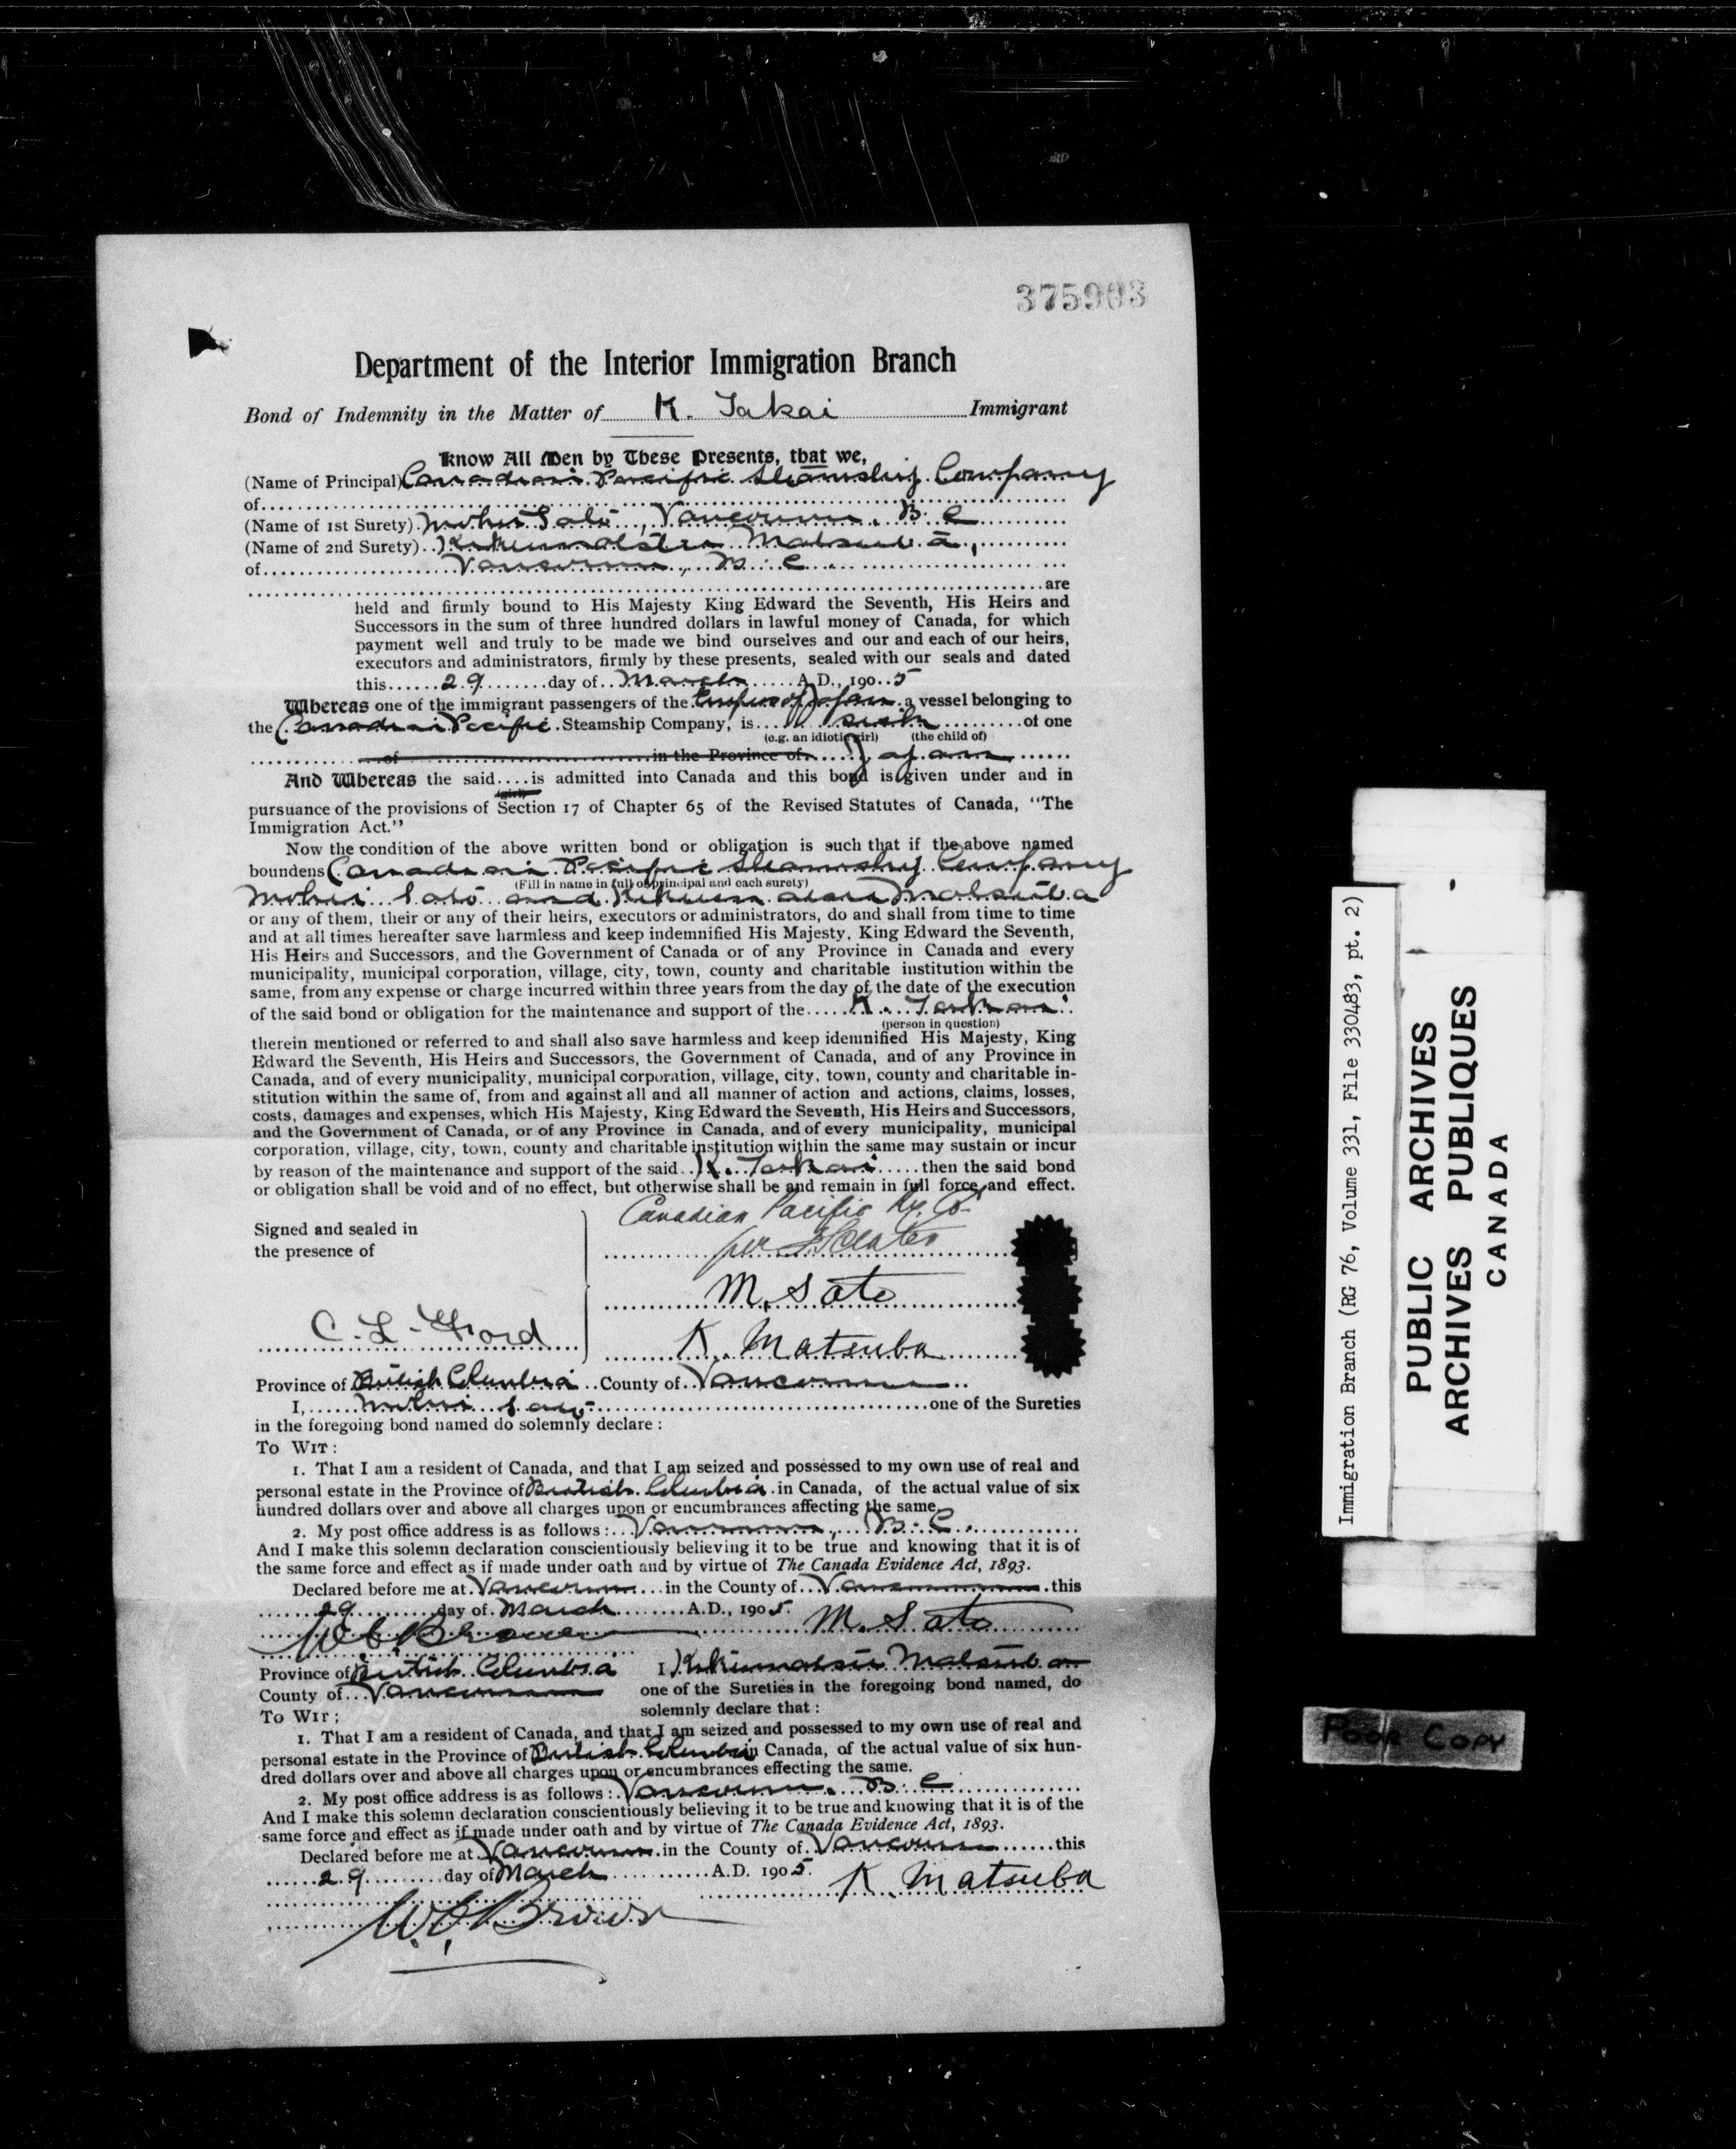 375903
Department of the Interior Immigration Branch
Bond of Indemnity in the Matter of K. Takai Immigrant
Know All Men by These Presents, that we,
(Name of Principal) Canadian Pacific Steamship Company
of
(Name of 1st Surety) Mohei Sato, Vancouver, B. C
(Name of 2nd Surety) Matsuba,
of Vancouver, B. C.
are
held and firmly bound to His Majesty King Edward the Seventh, His Heirs and
Successors in the sum of three hundred dollars in lawful money of Canada, for which
payment well and truly to be made we bind ourselves and our and each of our heirs,
executors and administrators, firmly by these presents, sealed with our seals and dated
this 29 day of March A.D., 1905
Whereas one of the immigrant passengers of the Empire of Japan a vessel belonging to
the Canadian Pacific Steamship Company, is sick of one
(e.g. an idiotic girl) (the child of)
of in the Province of Japan
And Whereas the said....is admitted into Canada and this bond is given under and in
(girl)
pursuance of the provisions of Section 17 of Chapter 65 of the Revised Statutes of Canada, "The
Immigration Act."
Now the condition of the above written bond or obligation is such that if the above named
boundens Canadian Pacific Steamship Company
(Fill in name in full of principal and each surety)
Mohei Sato and Matsuba
or any of them, their or any of their heirs, executors or administrators, do and shall from time to time
and at all times hereafter save harmless and keep indemnified His Majesty, King Edward the Seventh,
His Heirs and Successors, and the Government of Canada or of any Province in Canada and every
municipality, municipal corporation, village, city, town, county and charitable institution within the
same, from any expense or charge incurred within three years from the day of the date of the execution
of the said bond or obligation for the maintenance and support of the K. Takai
(person in question)
therein mentioned or referred to and shall also save harmless and keep idemnified His Majesty, King
Edward the Seventh, His Heirs and Successors, the Government of Canada, and of any Province in
Canada, and of every municipality, municipal corporation, village, city, town, county and charitable in-
stitution within the same of, from and against all and all manner of action and actions, claims, losses,
costs, damages and expenses, which His Majesty, King Edward the Seventh, His Heirs and Successors,
and the Government of Canada, or of any Province in Canada, and of every municipality, municipal
corporation, village, city, town, county and charitable institution within the same may sustain or incur
by reason of the maintenance and support of the said K. Takai then the said bond
or obligation shall be void and of no effect, but otherwise shall be and remain in full force and effect.
Canadian Pacific Ry. Co
Signed and sealed in
the presence of
per
M. Sato
C. L.
K. Matsuba
Province of British Columbia County of Vancouver
I, Mohei Sato one of the Sureties
in the foregoing bond named do solemnly declare :
To Wit :
1. That I am a resident of Canada, and that I am seized and possessed to my own use of real and
personal estate in the Province of British Columbia in Canada, of the actual value of six
hundred dollars over and above all charges upon or encumbrances affecting the same.
2. My post office address is as follows : Vancouver, B. C.
And I make this solemn declaration conscientiously believing it to be true and knowing that it is of
the same force and effect as if made under oath and by virtue of The Canada Evidence Act, 1893.
Declared before me at Vancouver in the County of Vancouver this
29 day of March A.D., 1905.
M. Sato
W C Brown
Province of British Columbia I Matsuba
County of Vancouver one of the Sureties in the foregoing bond named, do
To Wit ; solemnly declare that :
1. That I am a resident of Canada, and that I am seized and possessed to my own use of real and
personal estate in the Province of British Columbia in Canada, of the actual value of six hun-
dred dollars over and above all charges upon or encumbrances effecting the same.
2. My post office address is as follows : Vancouver. B. C
And I make this solemn declaration conscientiously believing it to be true and knowing that it is of the
same force and effect as if made under oath and by virtue of The Canada Evidence Act, 1893.
Declared before me at Vancouver in the County of Vancouver this
29 day of March A.D. 1905.
K. Matsuba
W. C. Brown
Immigration Branch (RG 76, Volume 331, File 330483, pt. 2)
PUBLIC ARCHIVES
ARCHIVES PUBLIQUES
CANADA
Poor Copy